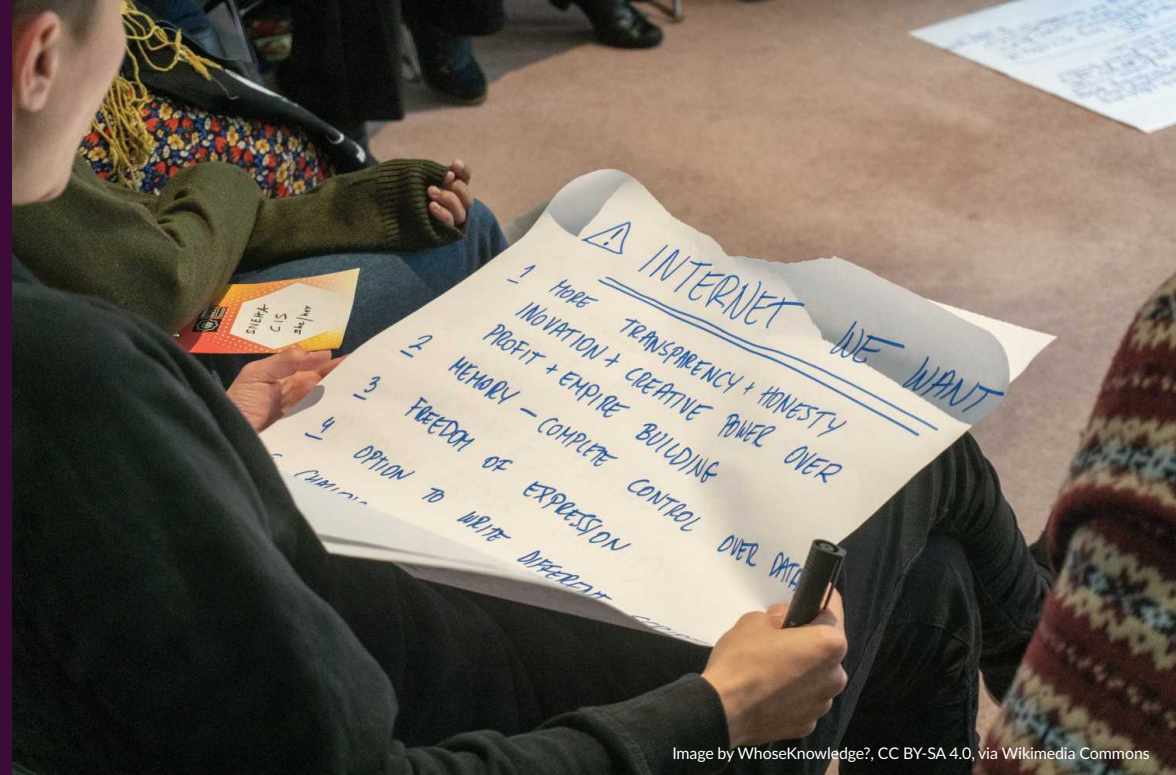 INTERNET WE WANT
1 MORE TRANSPARENCY + HONESTY
INOVATION + CREATIVE POWER OVER
PROFIT + EMPIRE BUILDING
2 MEMORY – COMPLETE CONTROL OVER DATA
3 FREEDOM OF EXPRESSION
4 OPTION TO WRITE DIFFERENT
SNEHA
CIS
she/her
Image by WhoseKnowledge?, CC BY-SA 4.0, via Wikimedia Commons